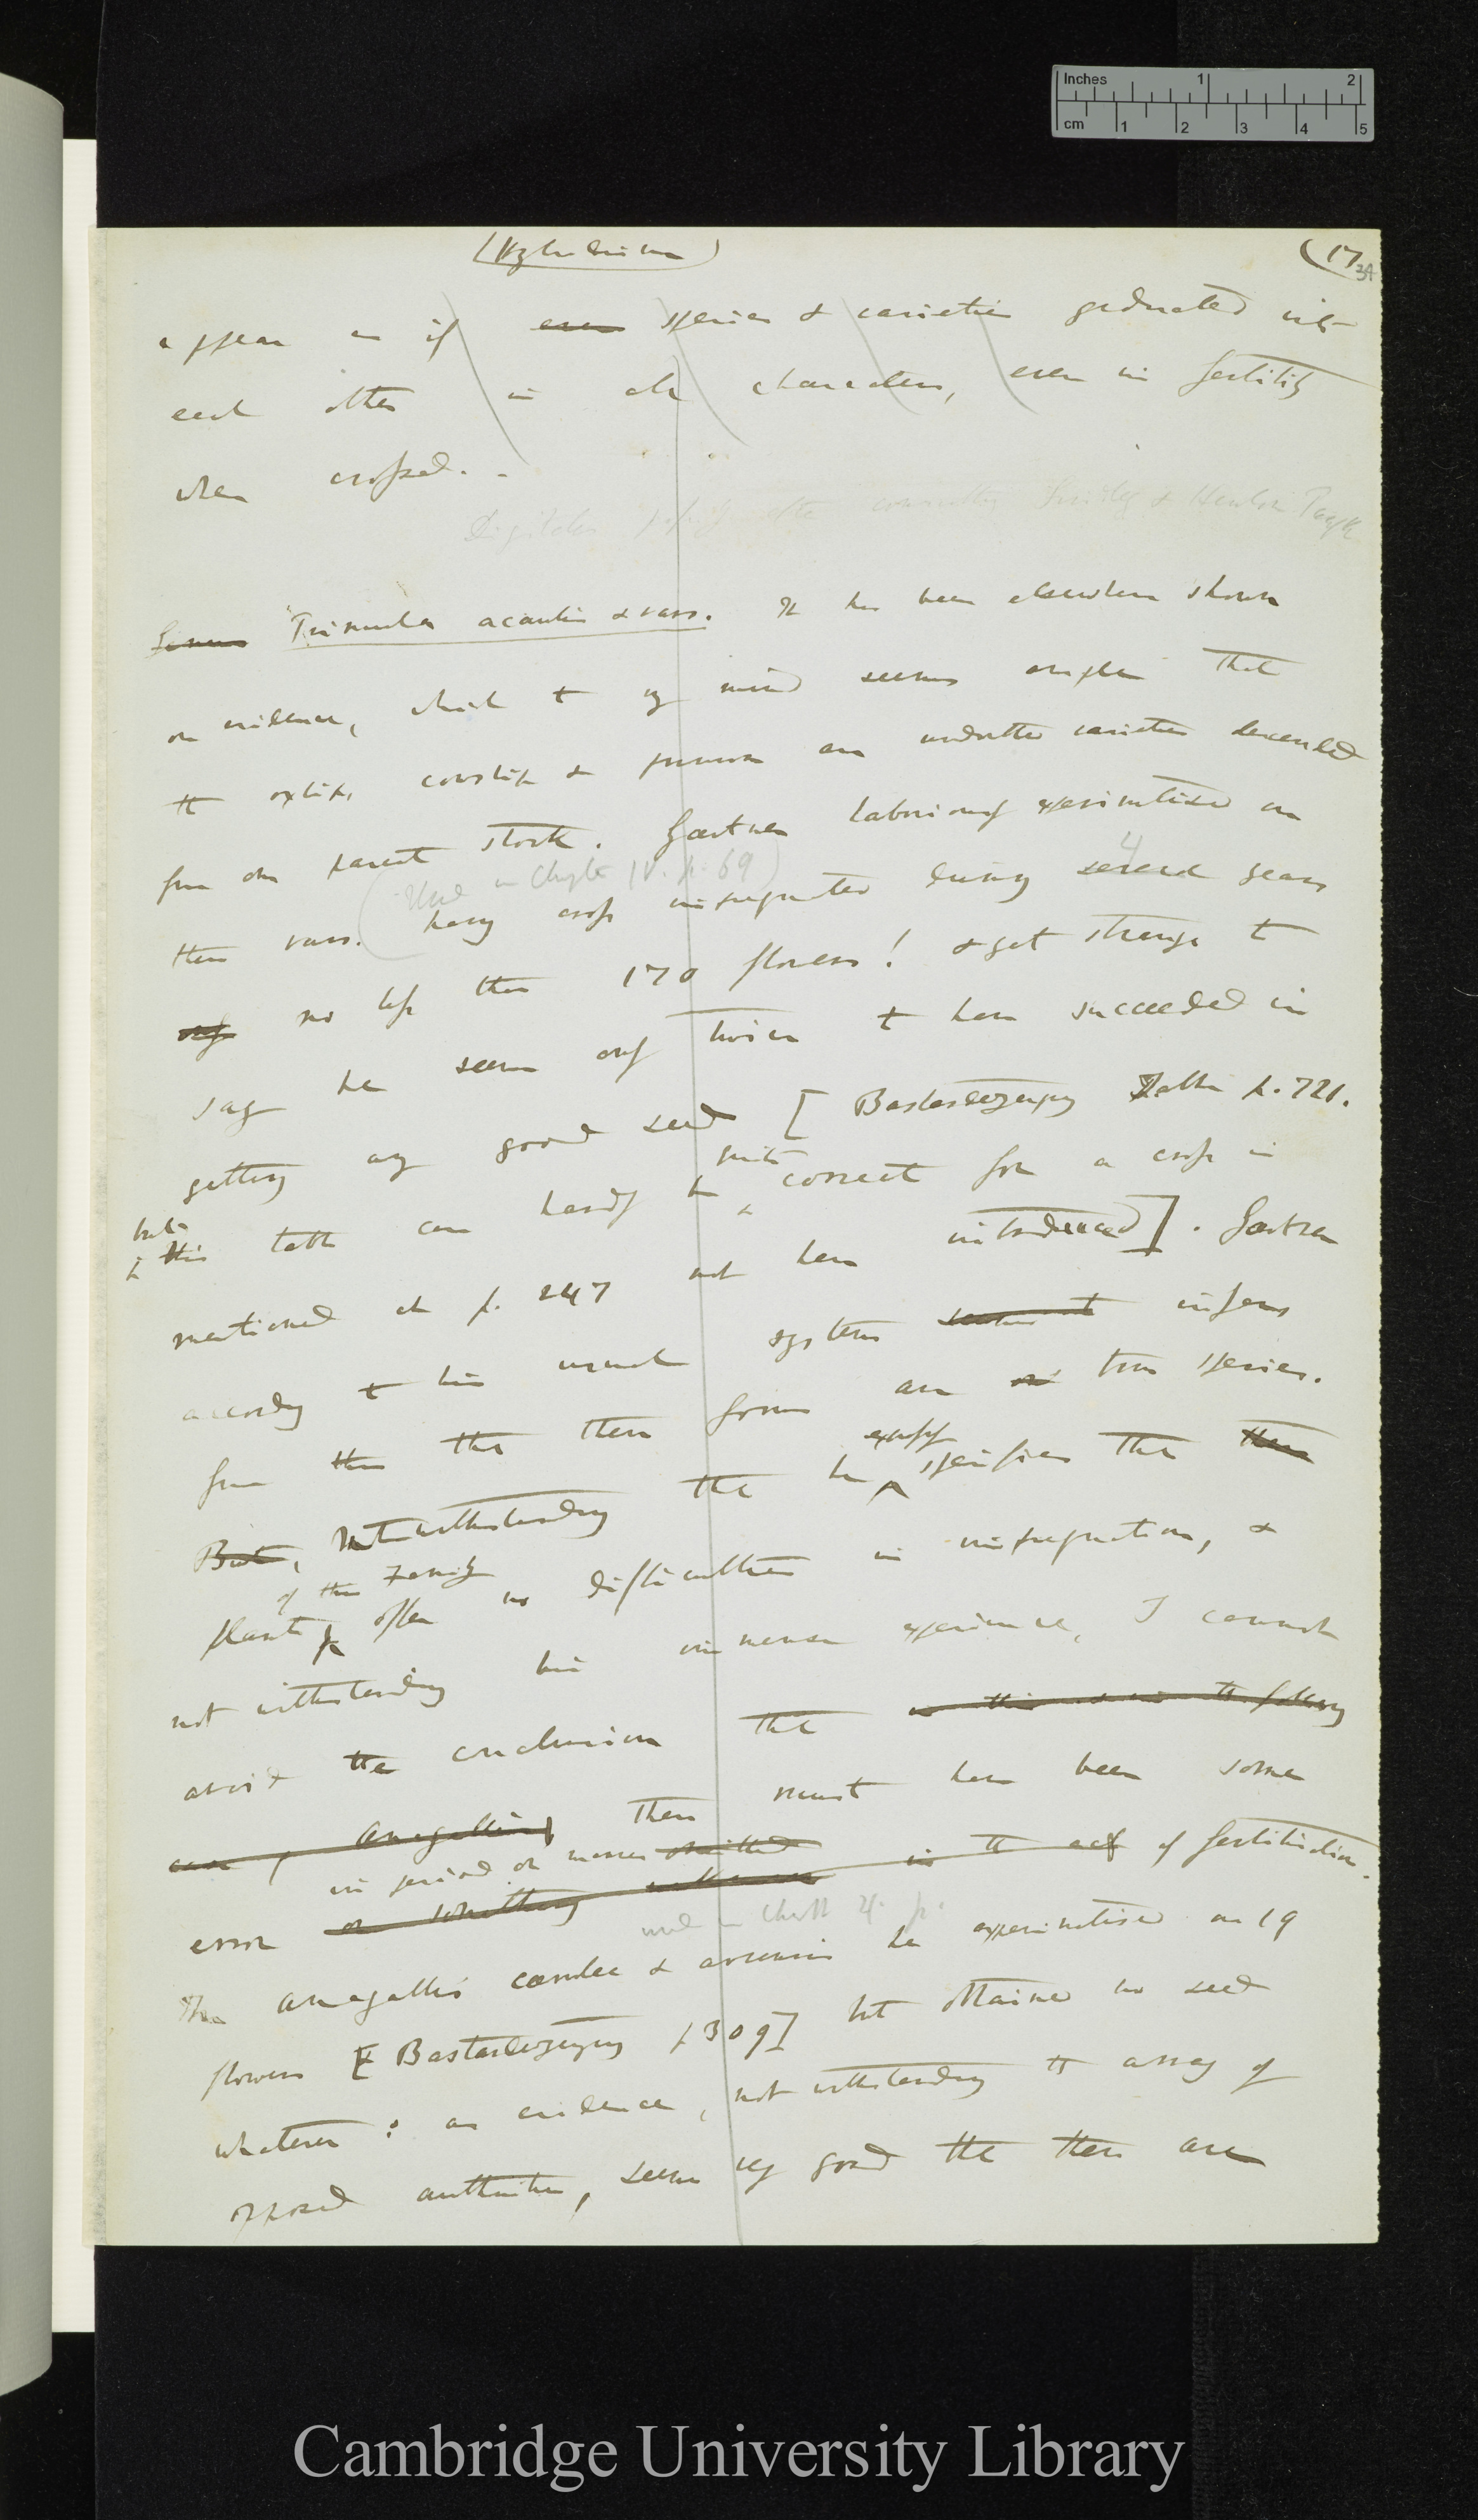 Inches 1 2
cm 1 2 3 4 5
(Hybridism)
(17
34
appear as if even species & varieties graduated into
each other in all characters, even in fertility
when crossed.
Digitalis
Genus Primula acaulis & vars. It has been elsewhere shown
on evidence, which to my mind seems ample that
the oxlip, cowslip & primrose are undoubted varieties descended
from one parent stock. Gærtner laboriously experimentised on
(Used in Chapter IV. p. 69)
4
these vars. having cross impregnated during several years
only no less than 170 flowers! & yet strange to
say he seems only twice to have succeeded in
getting any good seed [Bastarderzeugung Table p. 721.
but
quite
this table can hardly be correct for a cross is
mentioned at p. 247 not here introduced]. Gærtner
according to his usual system infers
from this that these forms are true species.
expressly
But, Notwithstanding that he specifies that these
of this Family
plants offer no difficulties in impregnation, &
notwithstanding his immense experience, I cannot
avoid the conclusion that in this & in the following
case of Anagallis, there must have been some
in period or manner omitted
error or something in the act of fertilisation.
used in Chapt 4. p.
The Anagallis cœrulea & arvensis he experimentised on 19
flowers [Bastarderzeugung p 309] but obtained no seed
whatever: as evidence, notwithstanding the array of
opposed authorities, seems very good that these are
Cambridge University Library